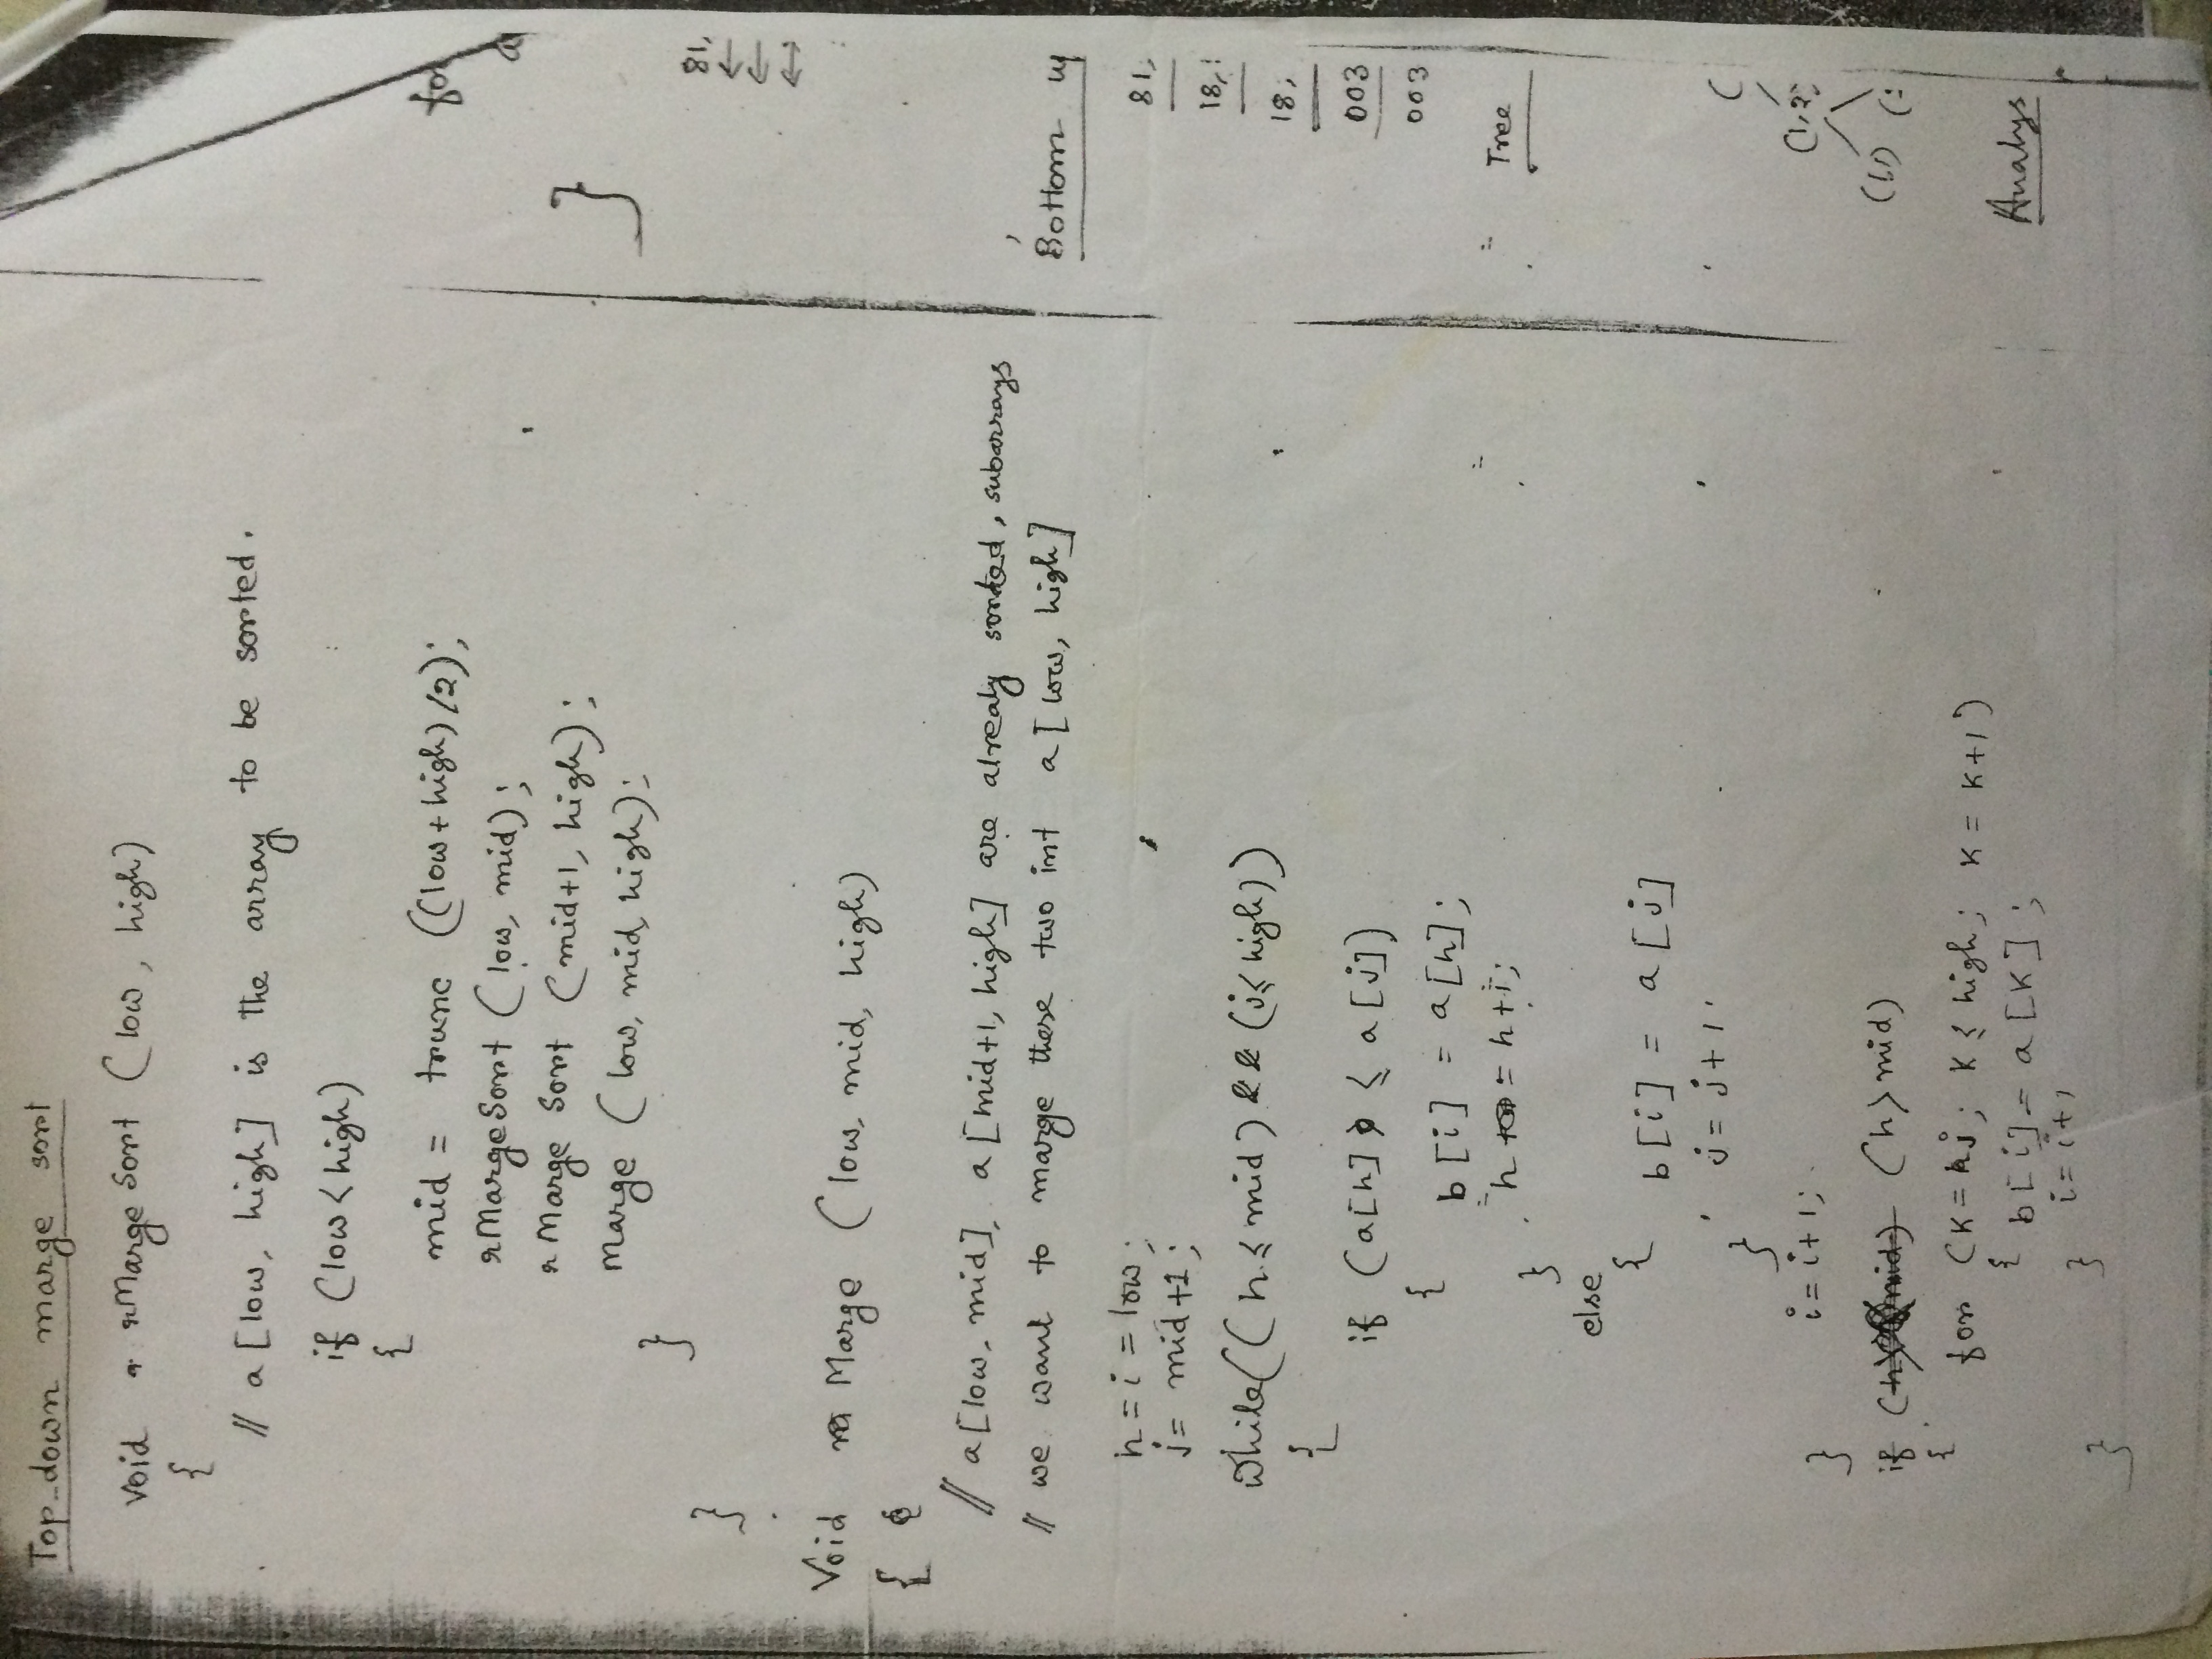 Top-down marge sort
void rMarge Sort (low, high)
{
// a [low, high] is the array to be sorted.
if (low < high)
{
mid = trunc ((low + high) /2);
rMargeSort (low, mid);
rMarge Sort (mid+1, high);
Marge (low, mid, high);
}
}
Void Marge (low, mid, high)
{
// a [low, mid], a [mid+1, high] are alrealy sorted, subarrays
// we want to marge these two int a [low, high]
h = i = low;
j = mid+1;
while ((h ≤ mid) && (j ≤ high))
{
if (a[h] ≤ a [j])
{
b [i] = a [h];
h = h+i;
}
else
{
b [i] = a [j]
j = j+1
}
i = i+1;
}
if (h > mid)
{
for (K = j; K ≤ high; K = K+1)
{
b [i] = a [K];
i = i+1
}
}
}
81,
Bottom
81,
18,
18,
003
003
Tree
Analys